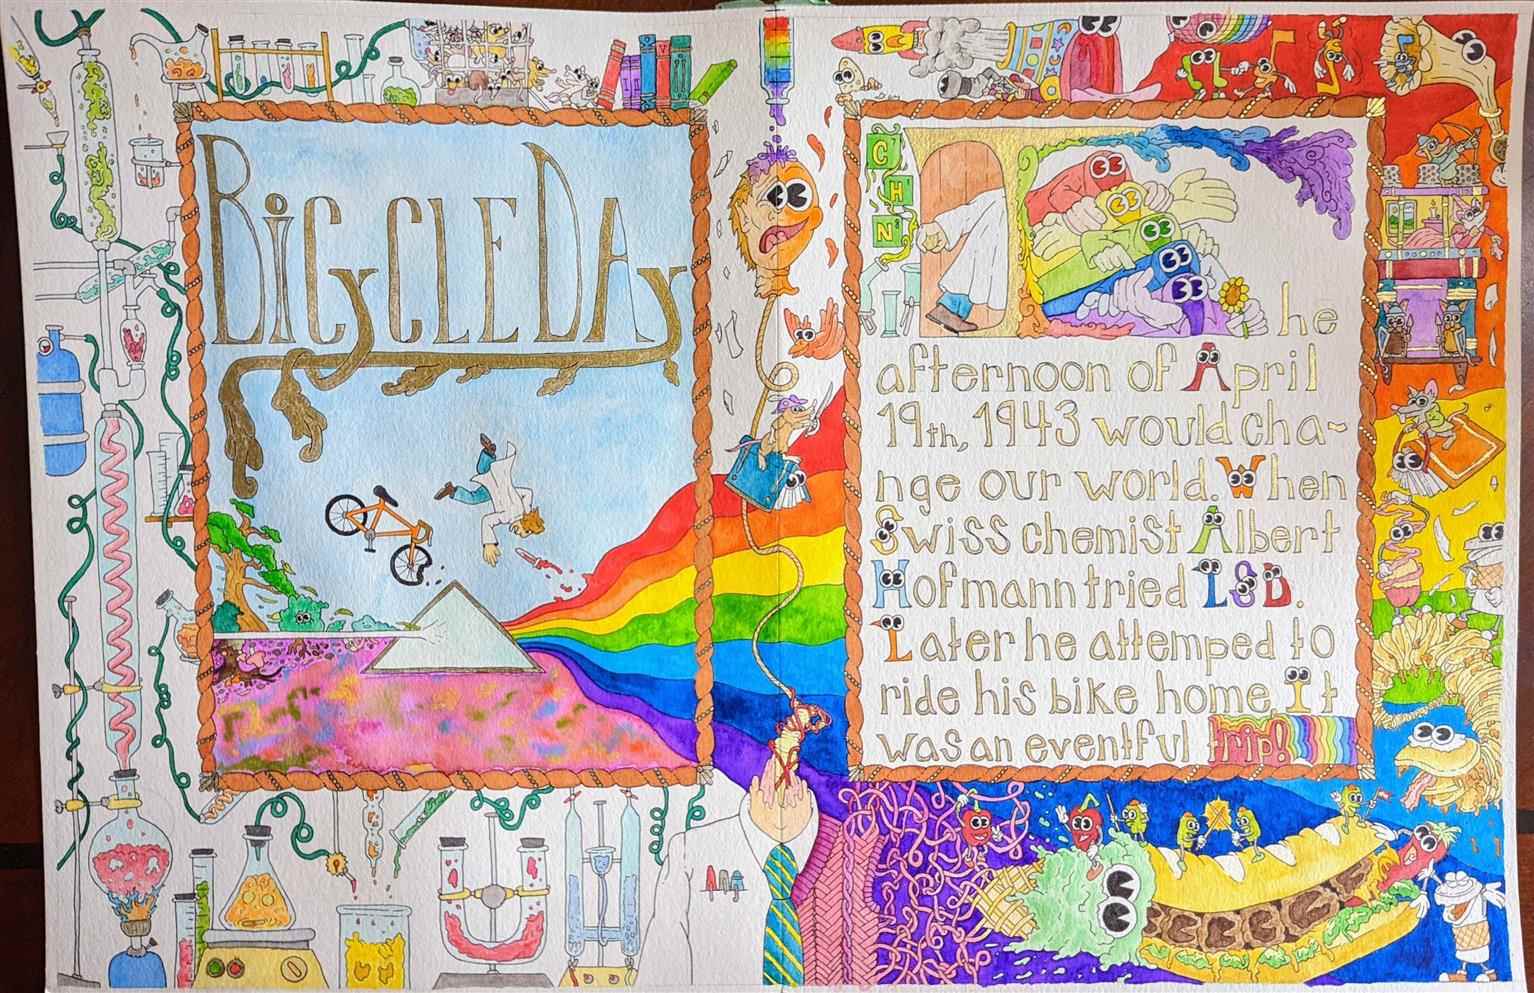 BicycLE DAy
C
H
N
The
afternoon of April
19th, 1943 would cha-
nge our world. When
Swiss chemist Albert
Hofmann tried LSD.
Later he attemped to
ride his bike home. It
was an eventful trip!